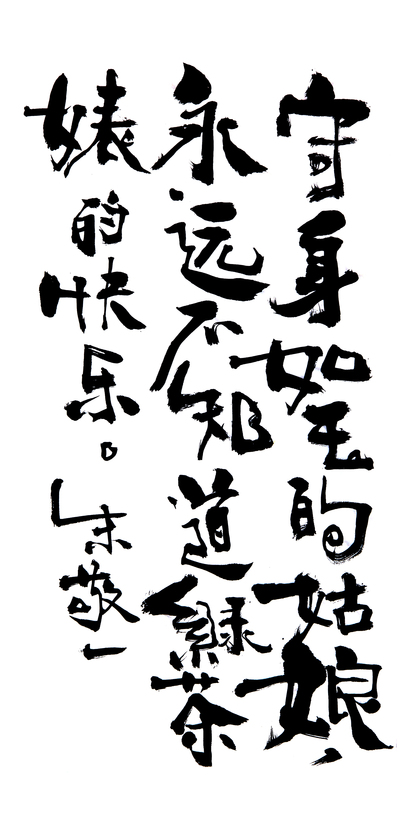 守身如玉的姑娘，
永远不知道緑茶
婊的快乐。朱敬一